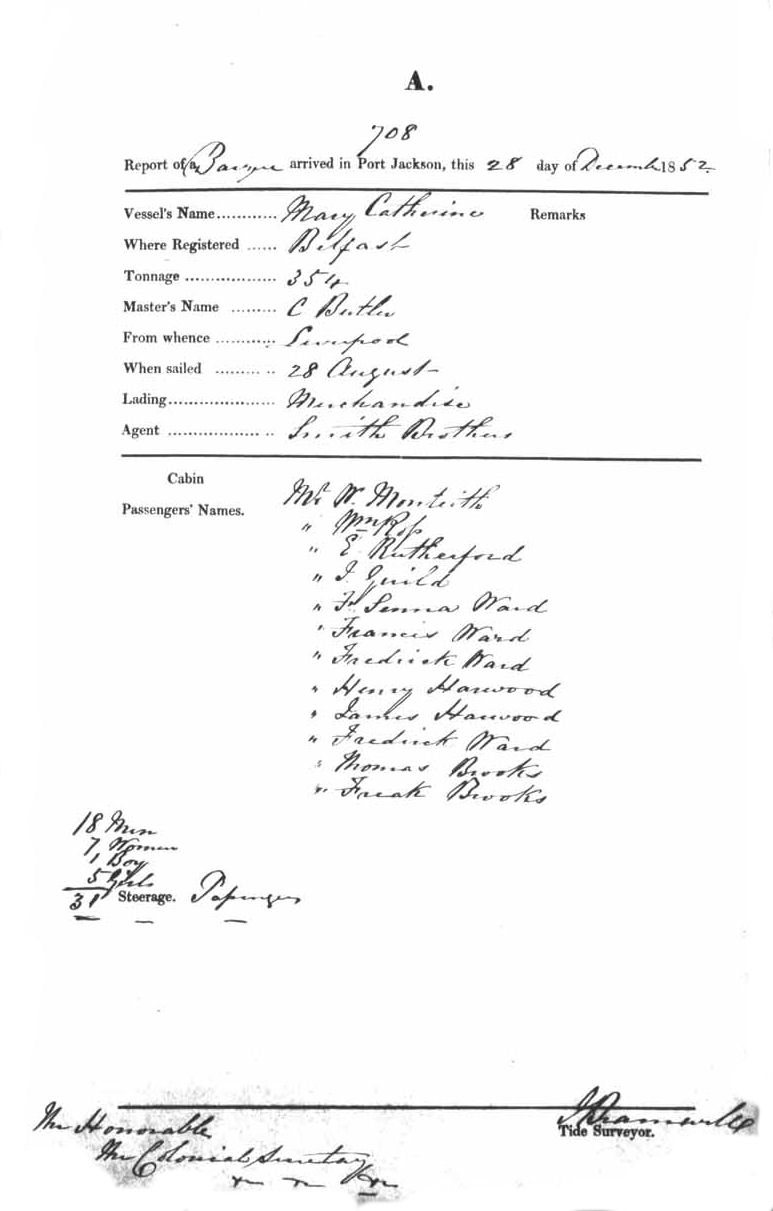 A.
708
Report of a Barque arrived in Port Jackson, this 28 day of December 1852.
Vessel's Name ............ Mary Catherine Remarks
Where Registered ...... Belfast
Tonnage .................. 354
Master's Name ......... C Butler
From whence ............ Liverpool
When sailed ......... .. 28 August
Lading..................... Merchandise
Agent .................. .. Smith Brothers
Cabin
Passengers' Names.
Mr W. Monteith
" Wm Ross
" E. Rutherford
" J. Guild
" Senna Ward
" Francis Ward
" Fredrick Ward
" Henry Harwood
" James Harwood
" Fredrick Ward
" Thomas Brooks
" Brooks
18 Men
7 Women
1 Boy
5 Girls
31 Steerage. Passengers
Tide Surveyor.
The Honorable
The Colonial Secretary